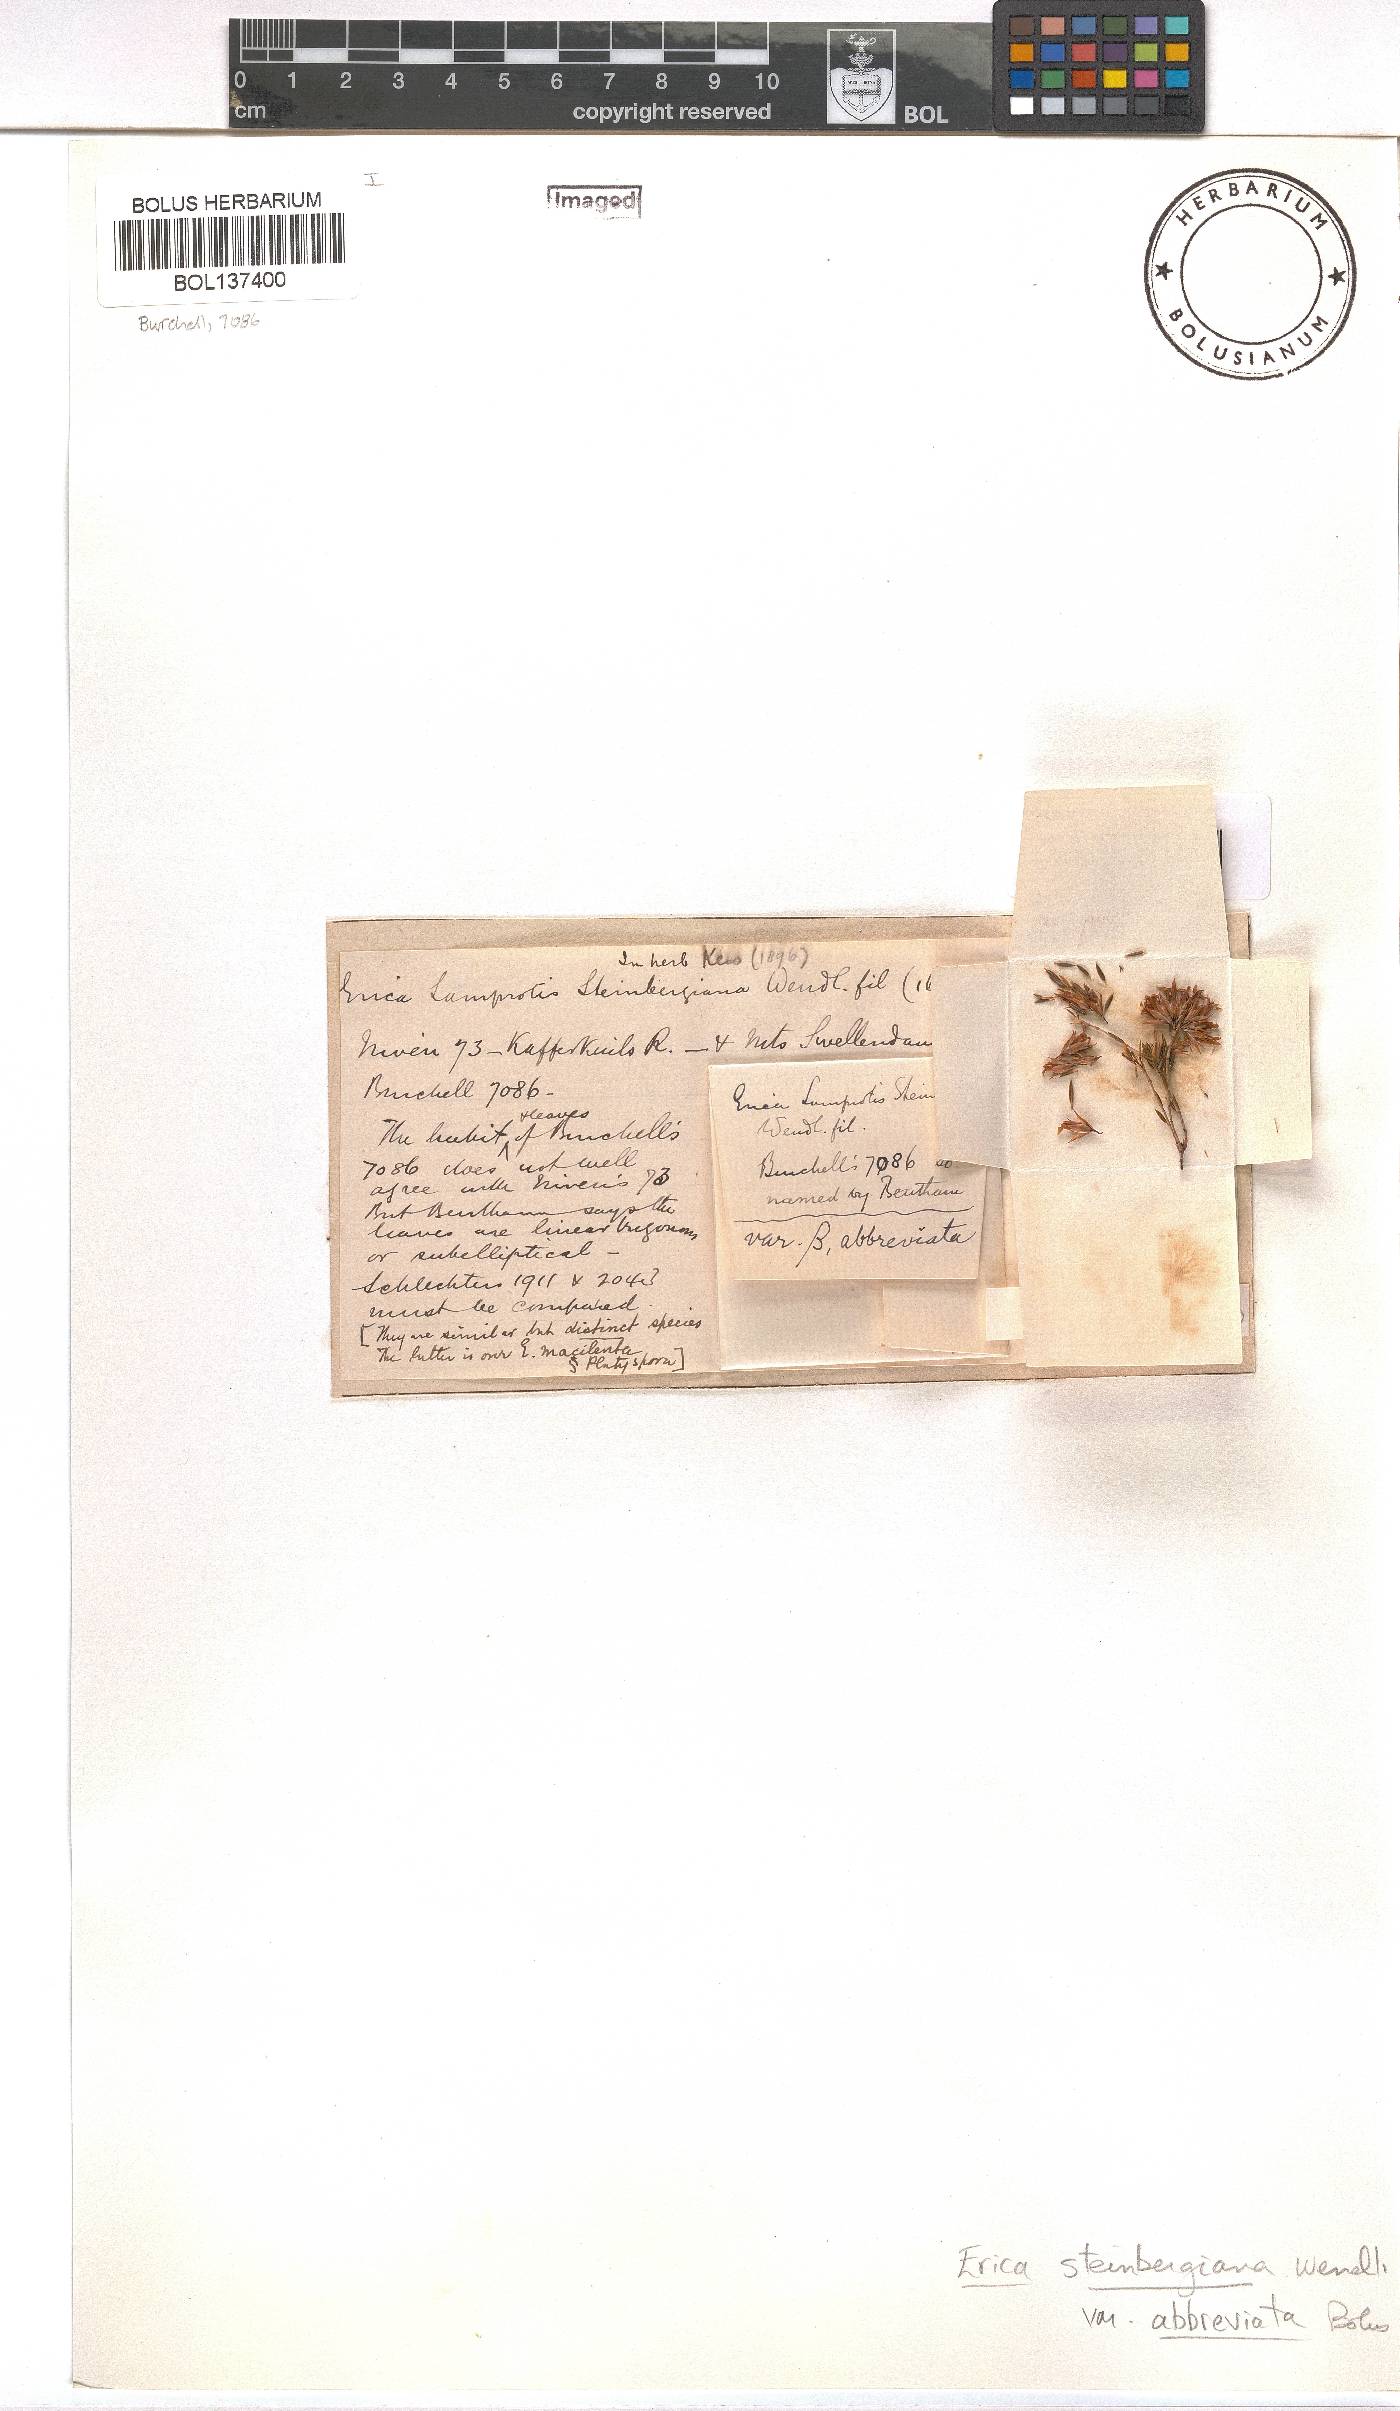 0 1 2 3 4 5 6 7 8 9 10
cm copyright reserved BOL
I
BOLUS HERBARIUM
BOL137400
Burchell, 7086
Imaged
HERBARIUM
BOLUSIANUM
In herb Kew (1896)
Erica Lamprotis Steinbergiana Wendl. fil
Niven 73 - Kafferkuils R. - & Mts Swellendam
Burchell 7086 -
& leaves
The habit ^ of Burchell's
7086 does not well
agree with Niven's 73
But Bentham says the
leaves are linear trigonous
or subelliptical -
Schlechters 1911 & 2043
must be compared.
[They are similar but distinct species
The latter is our E. macilenta
§ Platyspora]
Erica Lamprotis Stein
Wendl. fil.
Burchell's 7086 so
named by Bentham
var. β, abbreviata
Erica steinbergiana Wendl.
var. abbreviata Bolus